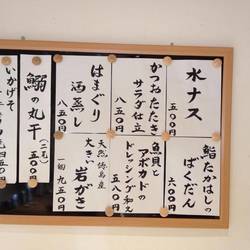 水ナス
五〇〇円
鮨たかはしの
ばくだん
六〇〇円
かつおたたき
サラダ仕立
八五〇円
魚貝と
アボカドの
ドレッシング和え
五八〇円
はまぐり
酒蒸し
八五〇円
天然徳島産
大きい岩がき
一個 九五〇円
鰯の丸干
(二尾)
五〇〇円
いかげそ